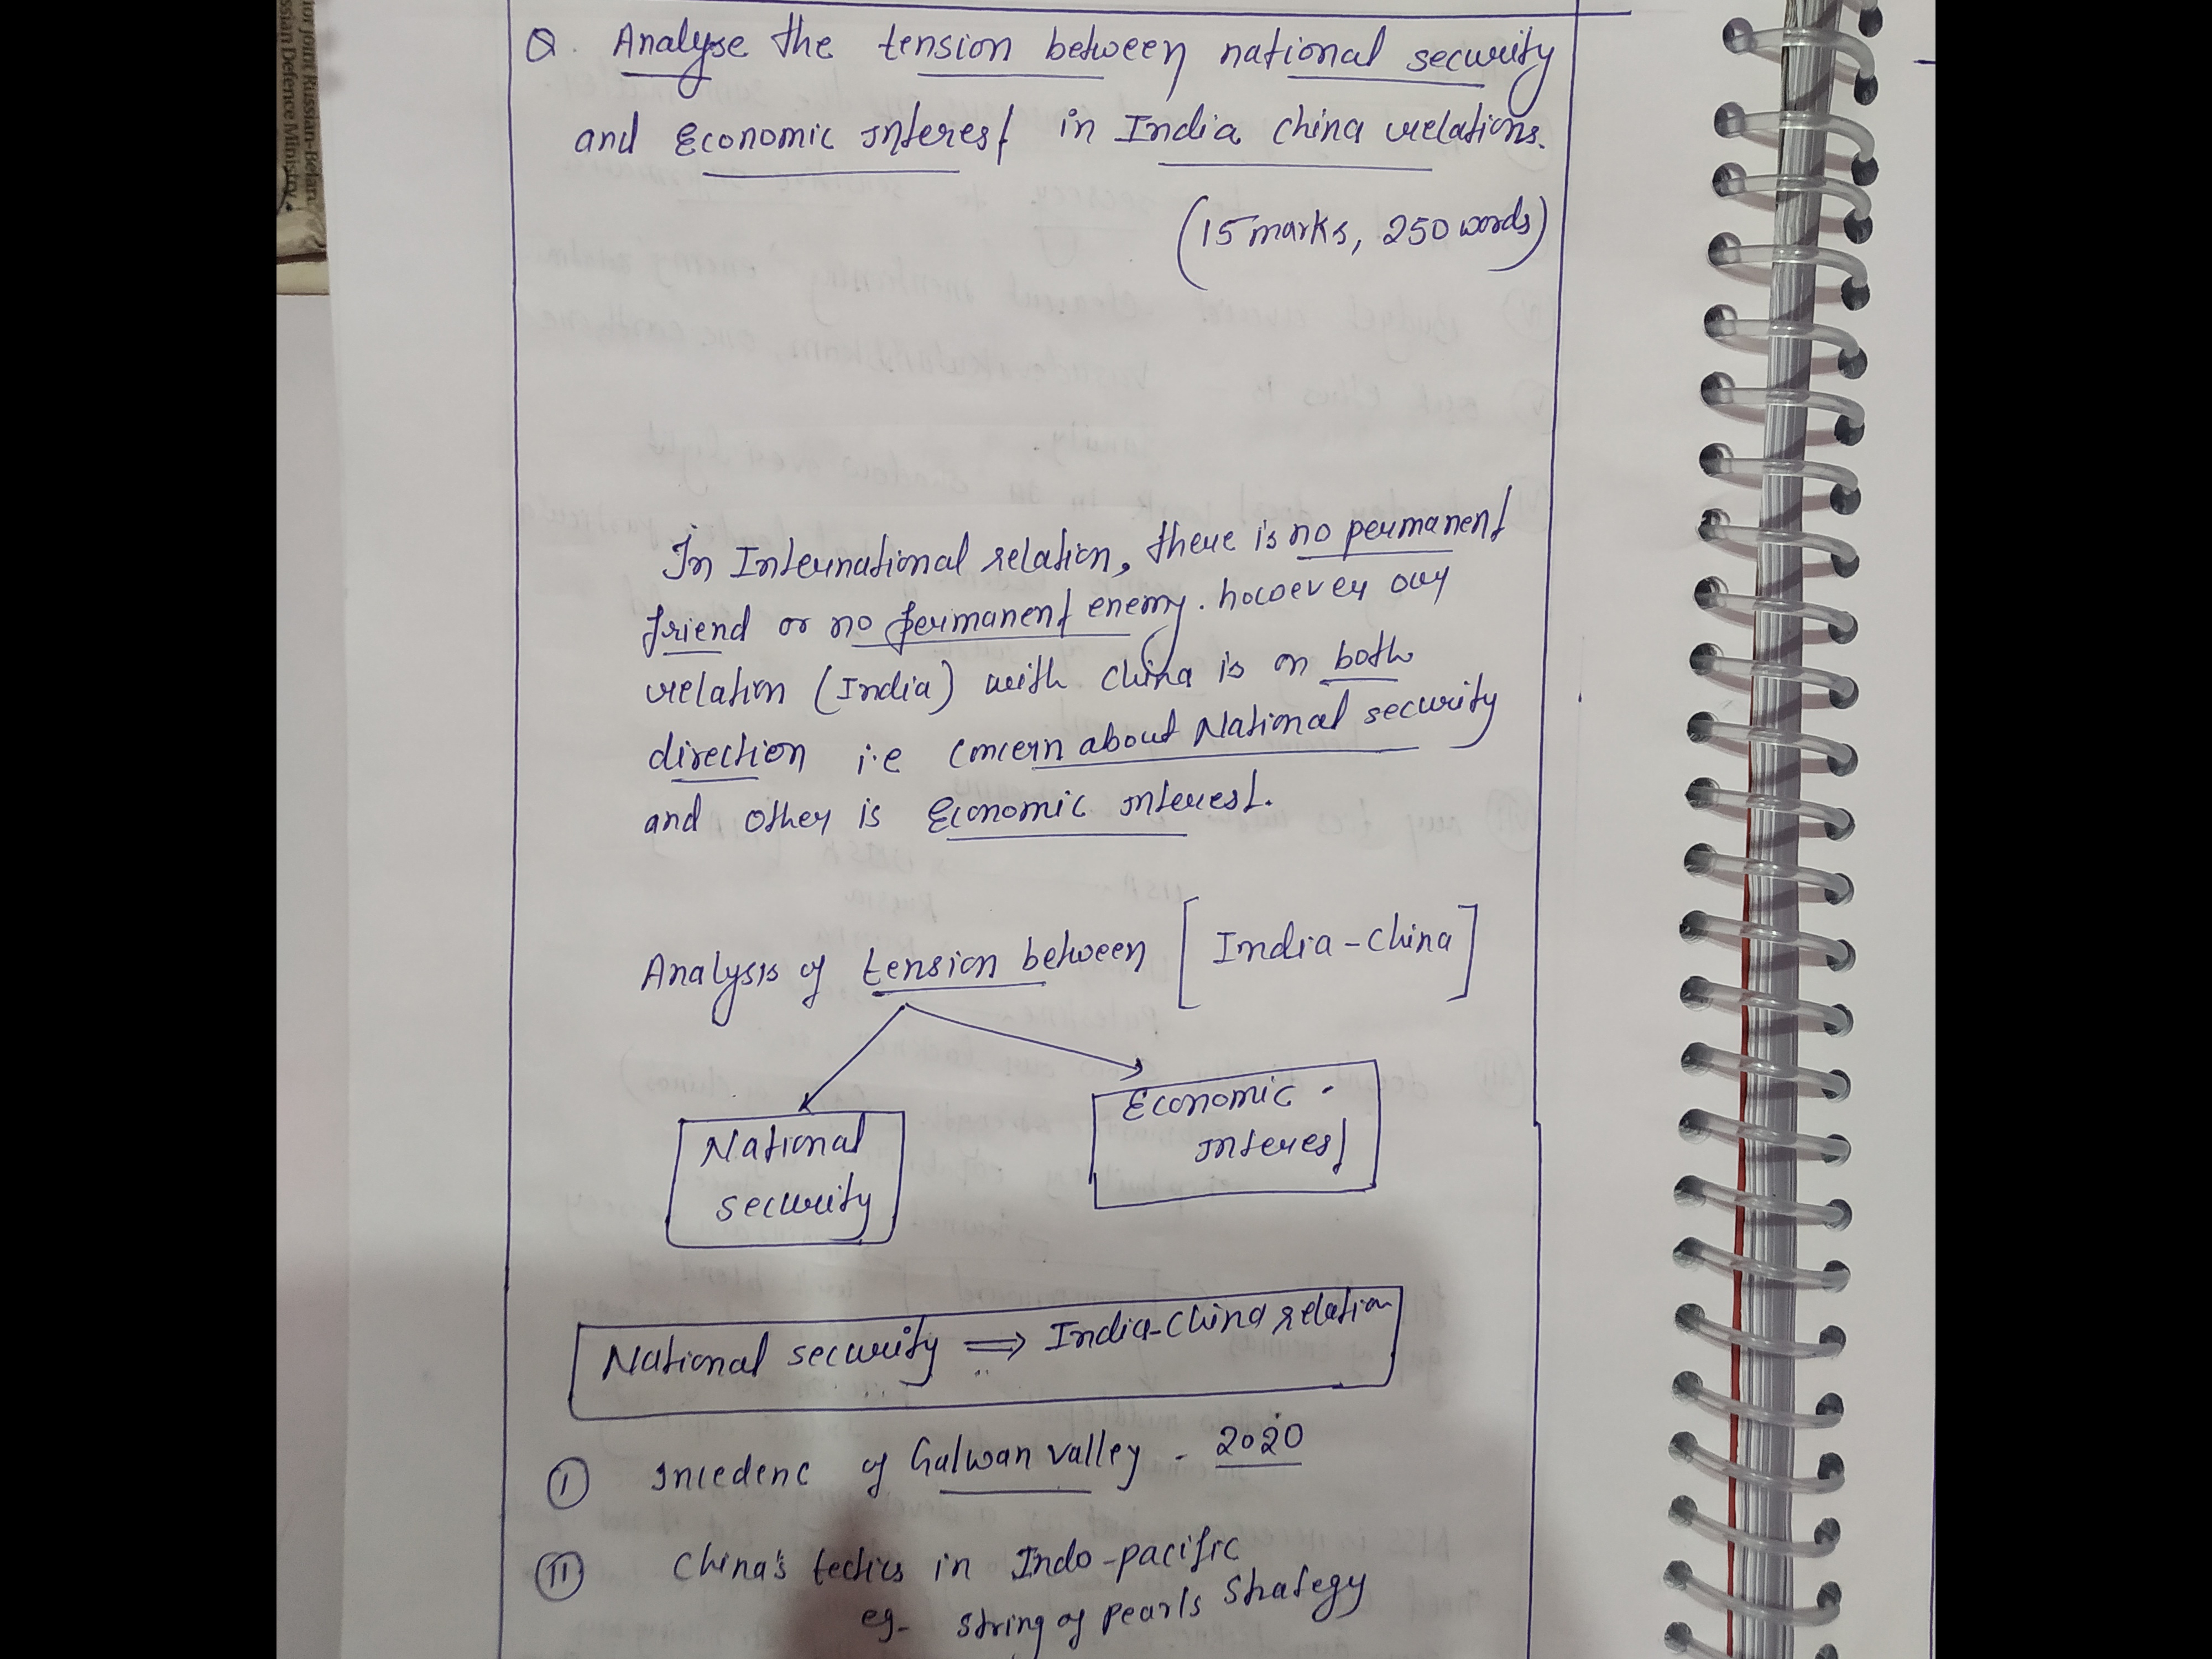 ior joint Russian-Belaru
ssian Defence Ministry
Q. Analyse the tension between national security
and Economic Interest in India china relations.
(15 marks, 250 words)
In International relation, there is no permanent
friend or no permanent enemy. however our
relation (India) with China is on both
direction i.e concern about National security
and other is Economic interest.
Analysis of tension between [India-China]
National
security
Economic -
interest
National security ⇒ India-China relation
I Incedenc of Galwan valley - 2020
II China's tectics in Indo-pacific
eg- string of pearls strategy